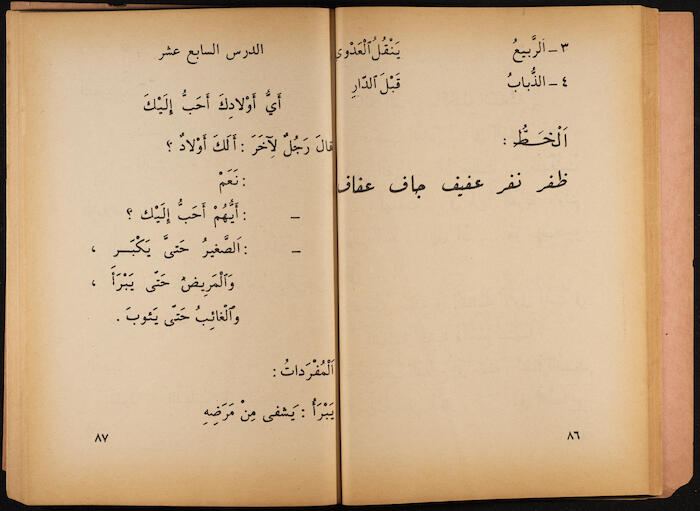 ٣ - اَلرَّبيعُ يَنْقُلُ الْعَدْوى
٤ - الذُّبابُ قَبْلَ الدّارِ
اَلْخَـطُّ :
ظفر نفر عفيف جاف عفاف
٨٦
الدرس السابع عشر
أَيُّ أَوْلادِكَ أَحَبُّ إِلَيْكَ
قالَ رَجُلٌ لِآخَرَ : أَلَكَ أَوْلادٌ ؟
: نَعَمْ
– : أَيُّهُمْ أَحَبُّ إِلَيْك ؟
– : اَلصَّغيرُ حَتىَّ يَكْبَــر ،
وَالْمَرِيضُ حَتّى يَبْرَأَ ،
وَالْغائِبُ حَتّى يَئوبَ .
اَلْمُفْرَداتُ :
يَبْرَأُ : يَشفى مِنْ مَرَضِهِ
٨٧